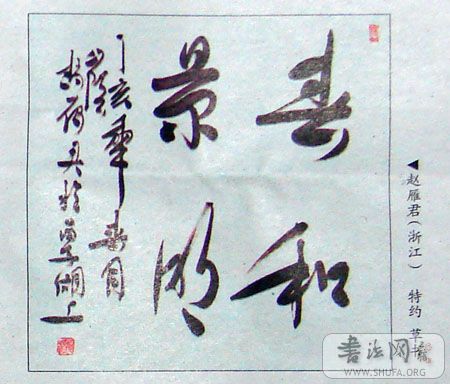 春和
景明
丁亥秊春月
趙雁君於西子湖上
◀ 赵雁君（浙江） 特约 草书
書法网
WWW.SHUFA.ORG